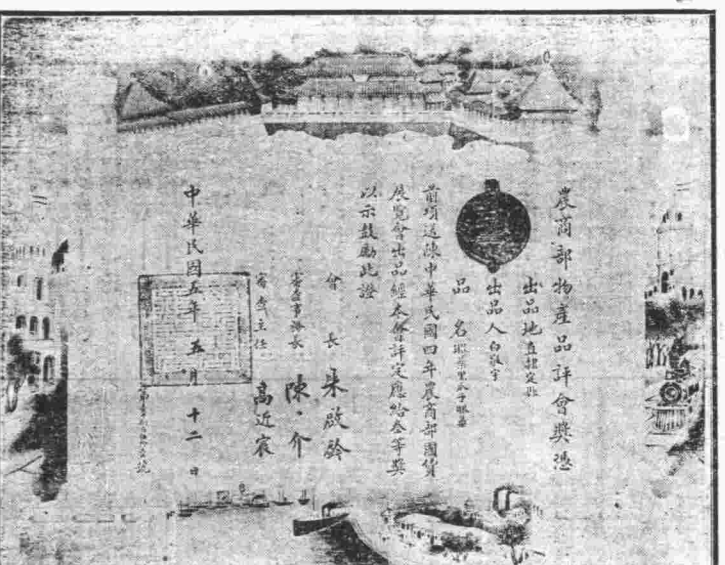 農商部物產品評會獎憑
出品地直隸定縣
出品人白敬宇
品名
前項送陳中華民國四年農商部國貨
展覽會出品經本會評定應給叁等獎
以示鼓勵此證
會長朱啟鈐
審查事務長陳介
審查主任高近宸
中華民國五年五月十二日